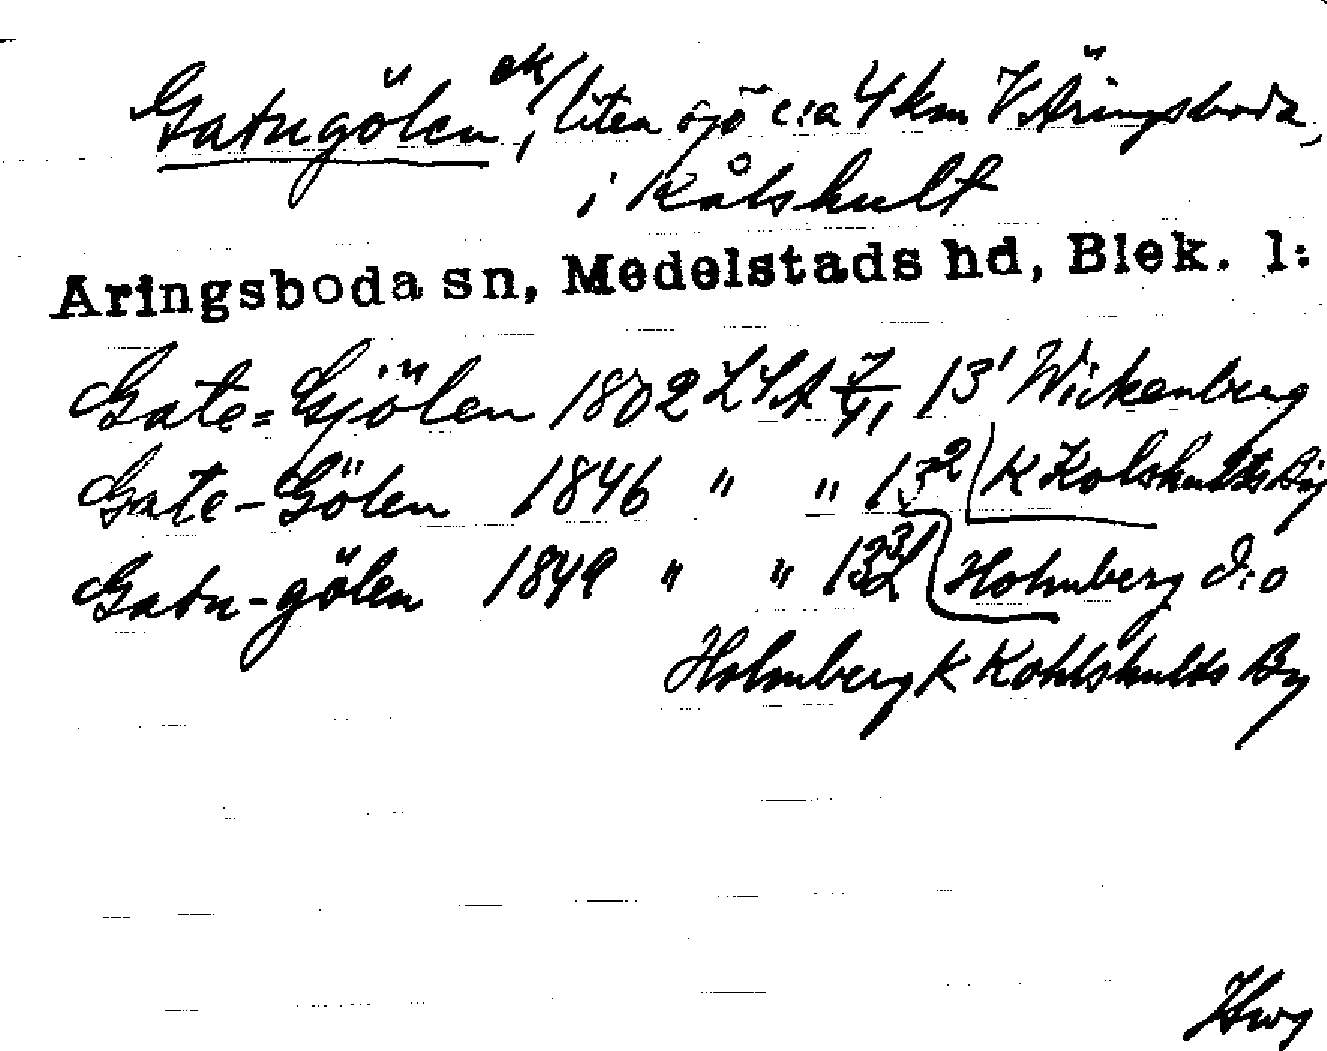 Gatugölen ek/, liten sjö c:a 4 km V Äringsboda,
i Kålshult
Aringsboda sn, Medelstads hd, Blek. l:
Gate=Gjölen 1802 LSA 13¹ Wickenberg
Gate-Gölen 1846 " " 13² K Kolshults By
Gatu-gölen 1849 " " 13³ Holmberg d:o
Holmberg K Kohlshults By